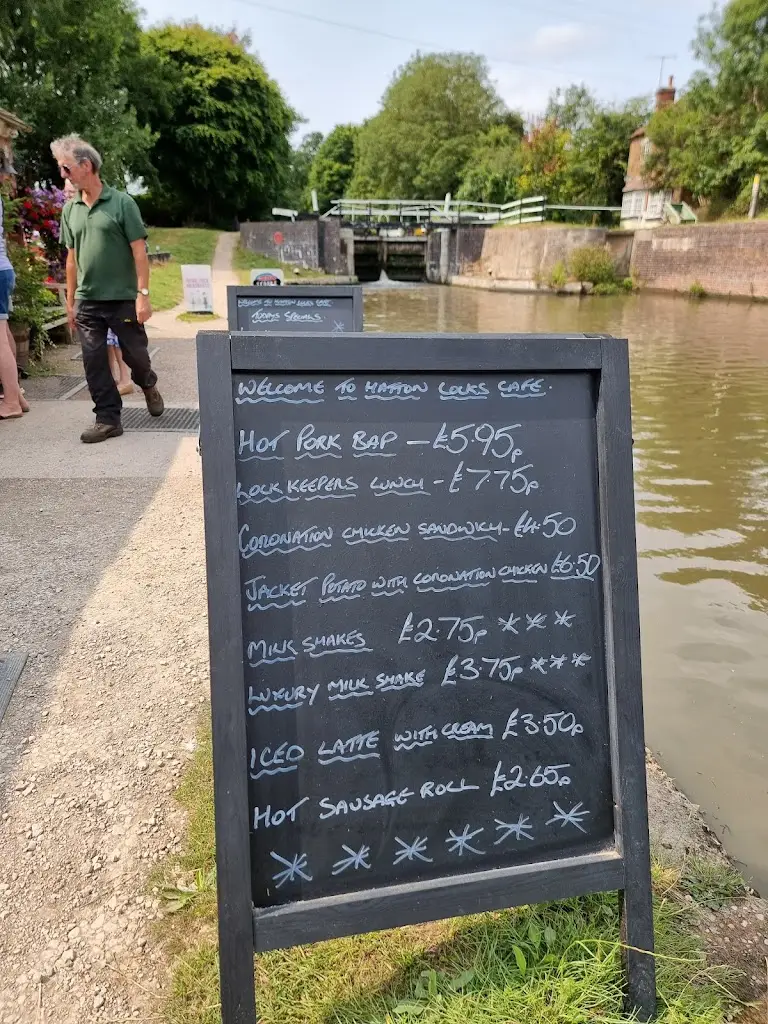 Today's Specials
WELCOME TO HATTON LOCKS CAFE.
HOT PORK BAP – £5.95p
LOCK KEEPERS LUNCH - £7.75p
CORONATION CHICKEN SANDWICH - £4.50
JACKET POTATO WITH CORONATION CHICKEN £6.50
MILK SHAKES £2.75p ***
LUXURY MILK SHAKE £3.75p ***
ICED LATTE WITH CREAM £3.50p
HOT SAUSAGE ROLL £2.65p
* * * * * *